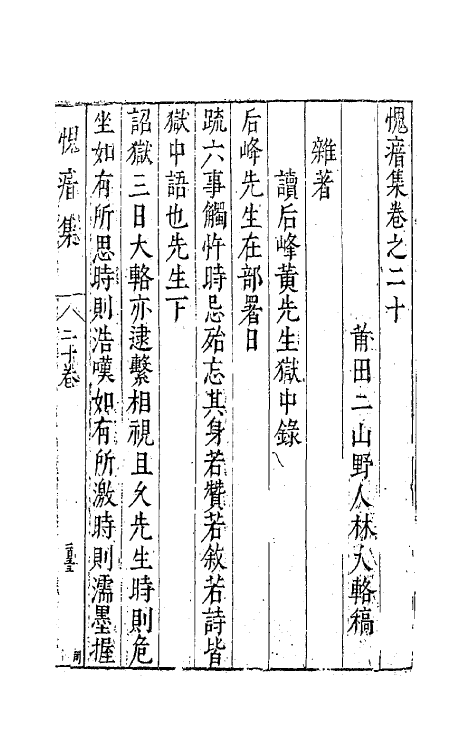 愧瘖集卷之二十
莆田二山野人林大輅稿
雜著
讀后峰黃先生獄中錄
后峰先生在部署日
疏六事觸忤時忌殆忘其身若贊若敘若詩皆
獄中語也先生下
詔獄三日大輅亦逮繫相視且久先生時則危
坐如有所思時則浩嘆如有所激時則濡墨握
愧瘖集
二十卷